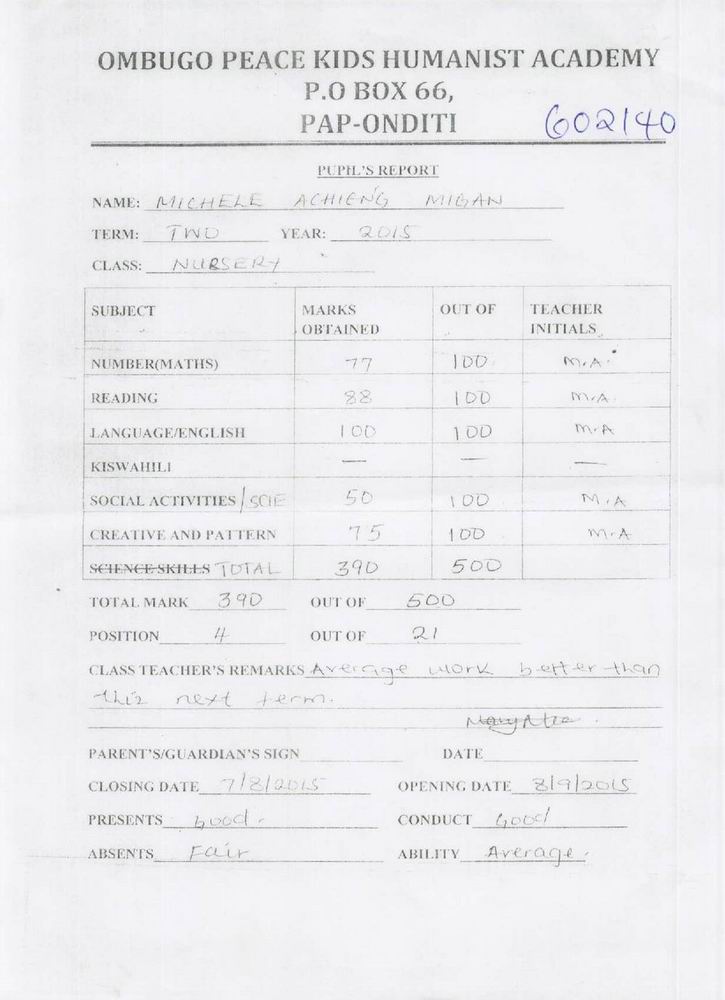 OMBUGO PEACE KIDS HUMANIST ACADEMY
P.O BOX 66,
PAP-ONDITI 602140
PUPIL'S REPORT
NAME: MICHELE ACHIENG MIGAN
TERM: TWO YEAR: 2015
CLASS: NURSERY
SUBJECT MARKS OBTAINED OUT OF TEACHER INITIALS
NUMBER(MATHS) 77 100 M.A.
READING 88 100 M.A.
LANGUAGE/ENGLISH 100 100 M.A
KISWAHILI — — —
SOCIAL ACTIVITIES/SCIE 50 100 M.A
CREATIVE AND PATTERN 75 100 M.A
SCIENCE SKILLS TOTAL 390 500
TOTAL MARK 390 OUT OF 500
POSITION 4 OUT OF 21
CLASS TEACHER'S REMARKS Average work better than
this next term.
PARENT'S/GUARDIAN'S SIGN DATE
CLOSING DATE 7/8/2015 OPENING DATE 8/9/2015
PRESENTS Good. CONDUCT Good
ABSENTS Fair ABILITY Average.